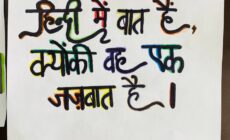 हिन्दी में बात हैं,
क्योंकी वह एक
जज़्बात है।